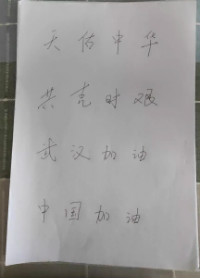 天佑中华
共克时艰
武汉加油
中国加油